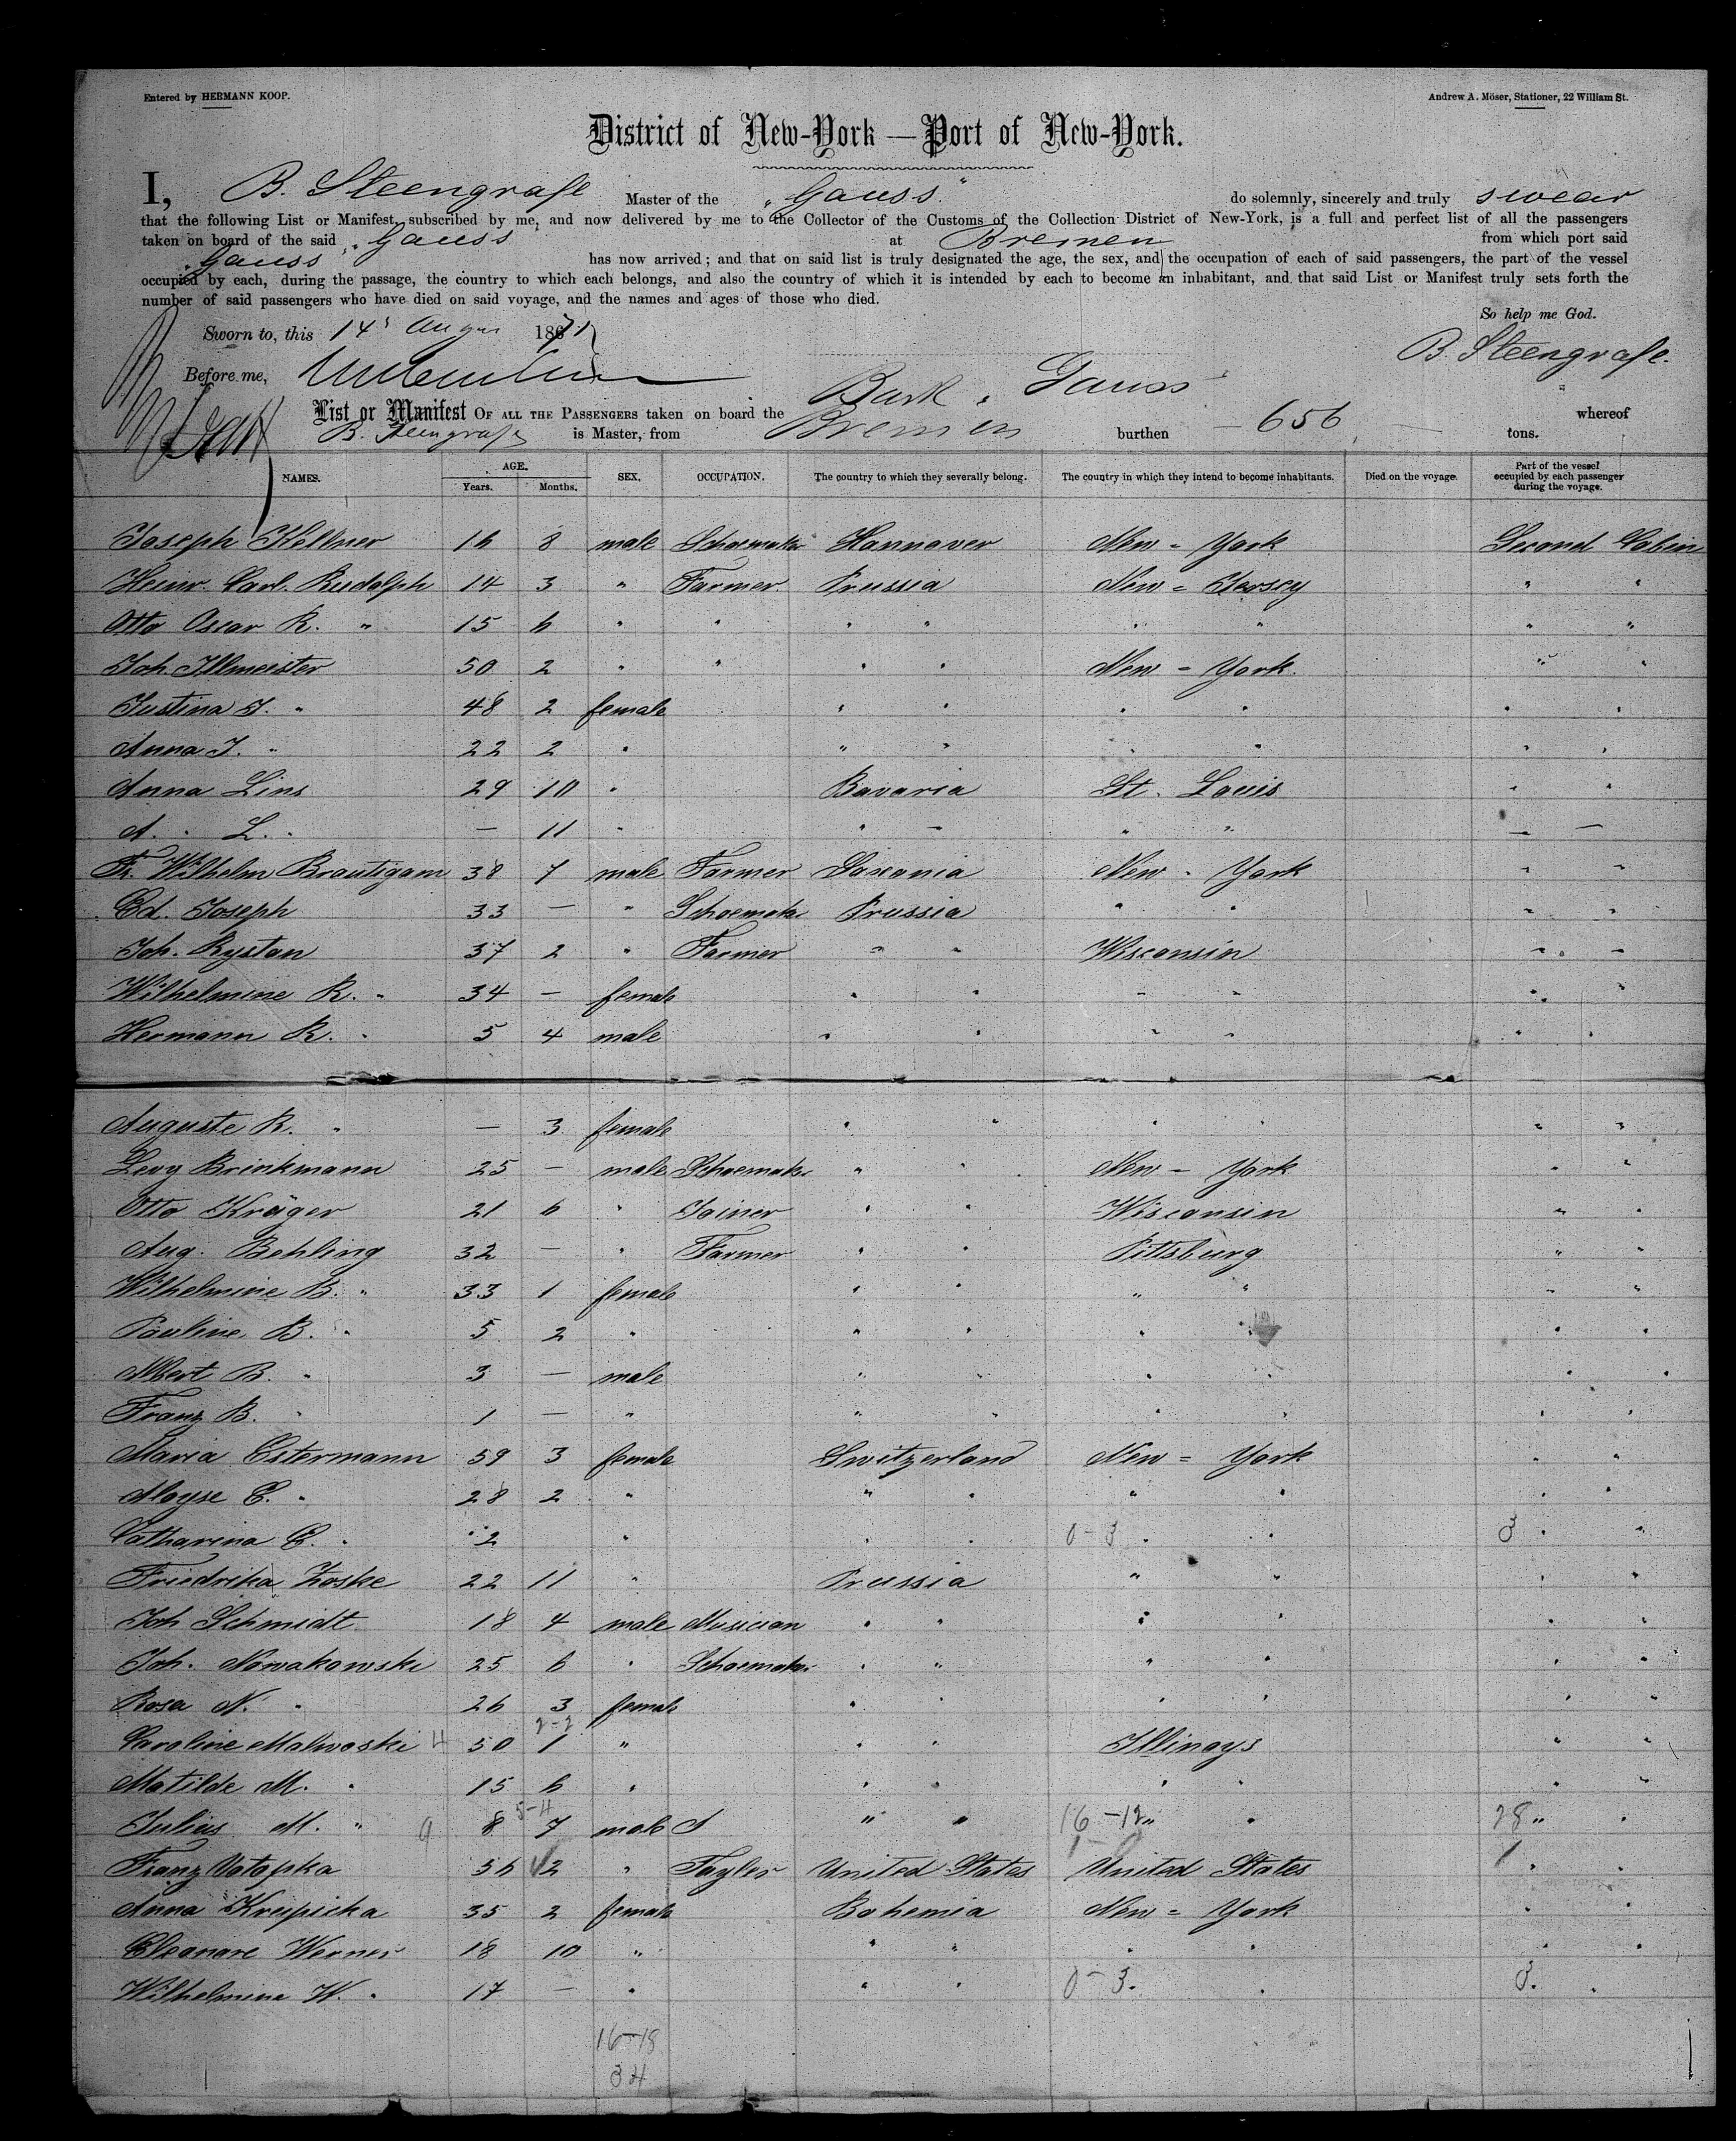 Entered by HERMANN KOOP.
Andrew A. Möser, Stationer, 22 William St.
District of New-York — Port of New-York.
I, B. Steengrafe Master of the „Gauss" do solemnly, sincerely and truly swear
that the following List or Manifest, subscribed by me, and now delivered by me to the Collector of the Customs of the Collection District of New-York, is a full and perfect list of all the passengers
taken on board of the said „Gauss" at Bremen from which port said
„Gauss" has now arrived; and that on said list is truly designated the age, the sex, and the occupation of each of said passengers, the part of the vessel
occupied by each, during the passage, the country to which each belongs, and also the country of which it is intended by each to become an inhabitant, and that said List or Manifest truly sets forth the
number of said passengers who have died on said voyage, and the names and ages of those who died.
So help me God.
Sworn to, this 14 1871
B. Steengrafe.
Before me,
List or Manifest OF ALL THE PASSENGERS taken on board the Bark „Gauss" whereof
B. Steengrafe is Master, from Bremen burthen — 656 — tons.
NAMES. AGE. Years. Months. SEX. OCCUPATION. The country to which they severally belong. The country in which they intend to become inhabitants. Died on the voyage. Part of the vessel occupied by each passenger during the voyage.
Joseph Kellner 16 8 male Schoemaker Hannover New = York Second Cabin
Heinr. Carl. Rudolph 14 3 " Farmer Prussia New = Jersey " "
Otto Oscar R. " 15 6 " " " " " " " "
Joh. Illmeister 50 2 " " " " New = York. " "
Justina I. " 48 2 female " " " " " "
Anna I. " 22 2 " " " " " " "
Anna Lins 29 10 " Bavaria St. Louis " "
A. " L. " — 11 " " " " " — —
Fr. Wilhelm Brautigam 38 7 male Farmer Saxonia New - York " "
Ed. Joseph 33 — " Schoemaker Prussia " " " "
Joh. Rystan 37 2 " Farmer " " Wisconsin " "
Wilhelmine R. " 34 — female " " " " " "
Hermann R. " 5 4 male " " " " " "
Auguste R. " — 3 female " " " " " "
Levy Brinkmann 25 — male Schoemaker " " New = York " "
Otto Kräger 21 6 " Joiner " " Wisconsin " "
Aug. Behling 32 — " Farmer " " Pittsburg " "
Wilhelmine B. " 33 1 female " " " " " "
Pauline B. " 5 2 " " " " " " "
Albert B. " 3 — male " " " " " "
Franz B. " 1 — " " " " " " "
Maria Estermann 59 3 female Switzerland New = York " "
Aloyse E. " 28 2 " " " " " " "
Catharina E. " 2 " " " 0-3 " " 3 " "
Friedrika Zoske 22 11 " Prussia " " " "
Joh Schmidt 18 4 male Musician " " " " " "
Joh. Nowakowski 25 6 " Schoemaker " " " " " "
Rosa N. " 26 3 female " " " " " "
2-2
Caroline Malwoski 4 50 1 " " " Illinoys " "
Matilde M. " 15 6 " " " " " " "
5-4
Julius M. " 9 8 7 male " " 16-12 " " 28 " "
Franz Votapka 36 2 " Taylor United States United States 1 " "
Anna Krupicka 35 2 female Bohemia New = York " "
Eleanore Werner 18 10 " " " " " " "
Wilhelmina W. " 17 — " " " 0-3. " 3. "
16-18
34